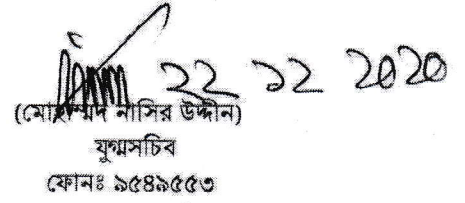 ২২ ১২ ২০২০
(মোহাম্মদ নাসির উদ্দীন)
যুগ্মসচিব
ফোনঃ ৯৫৪৯৫৫৩